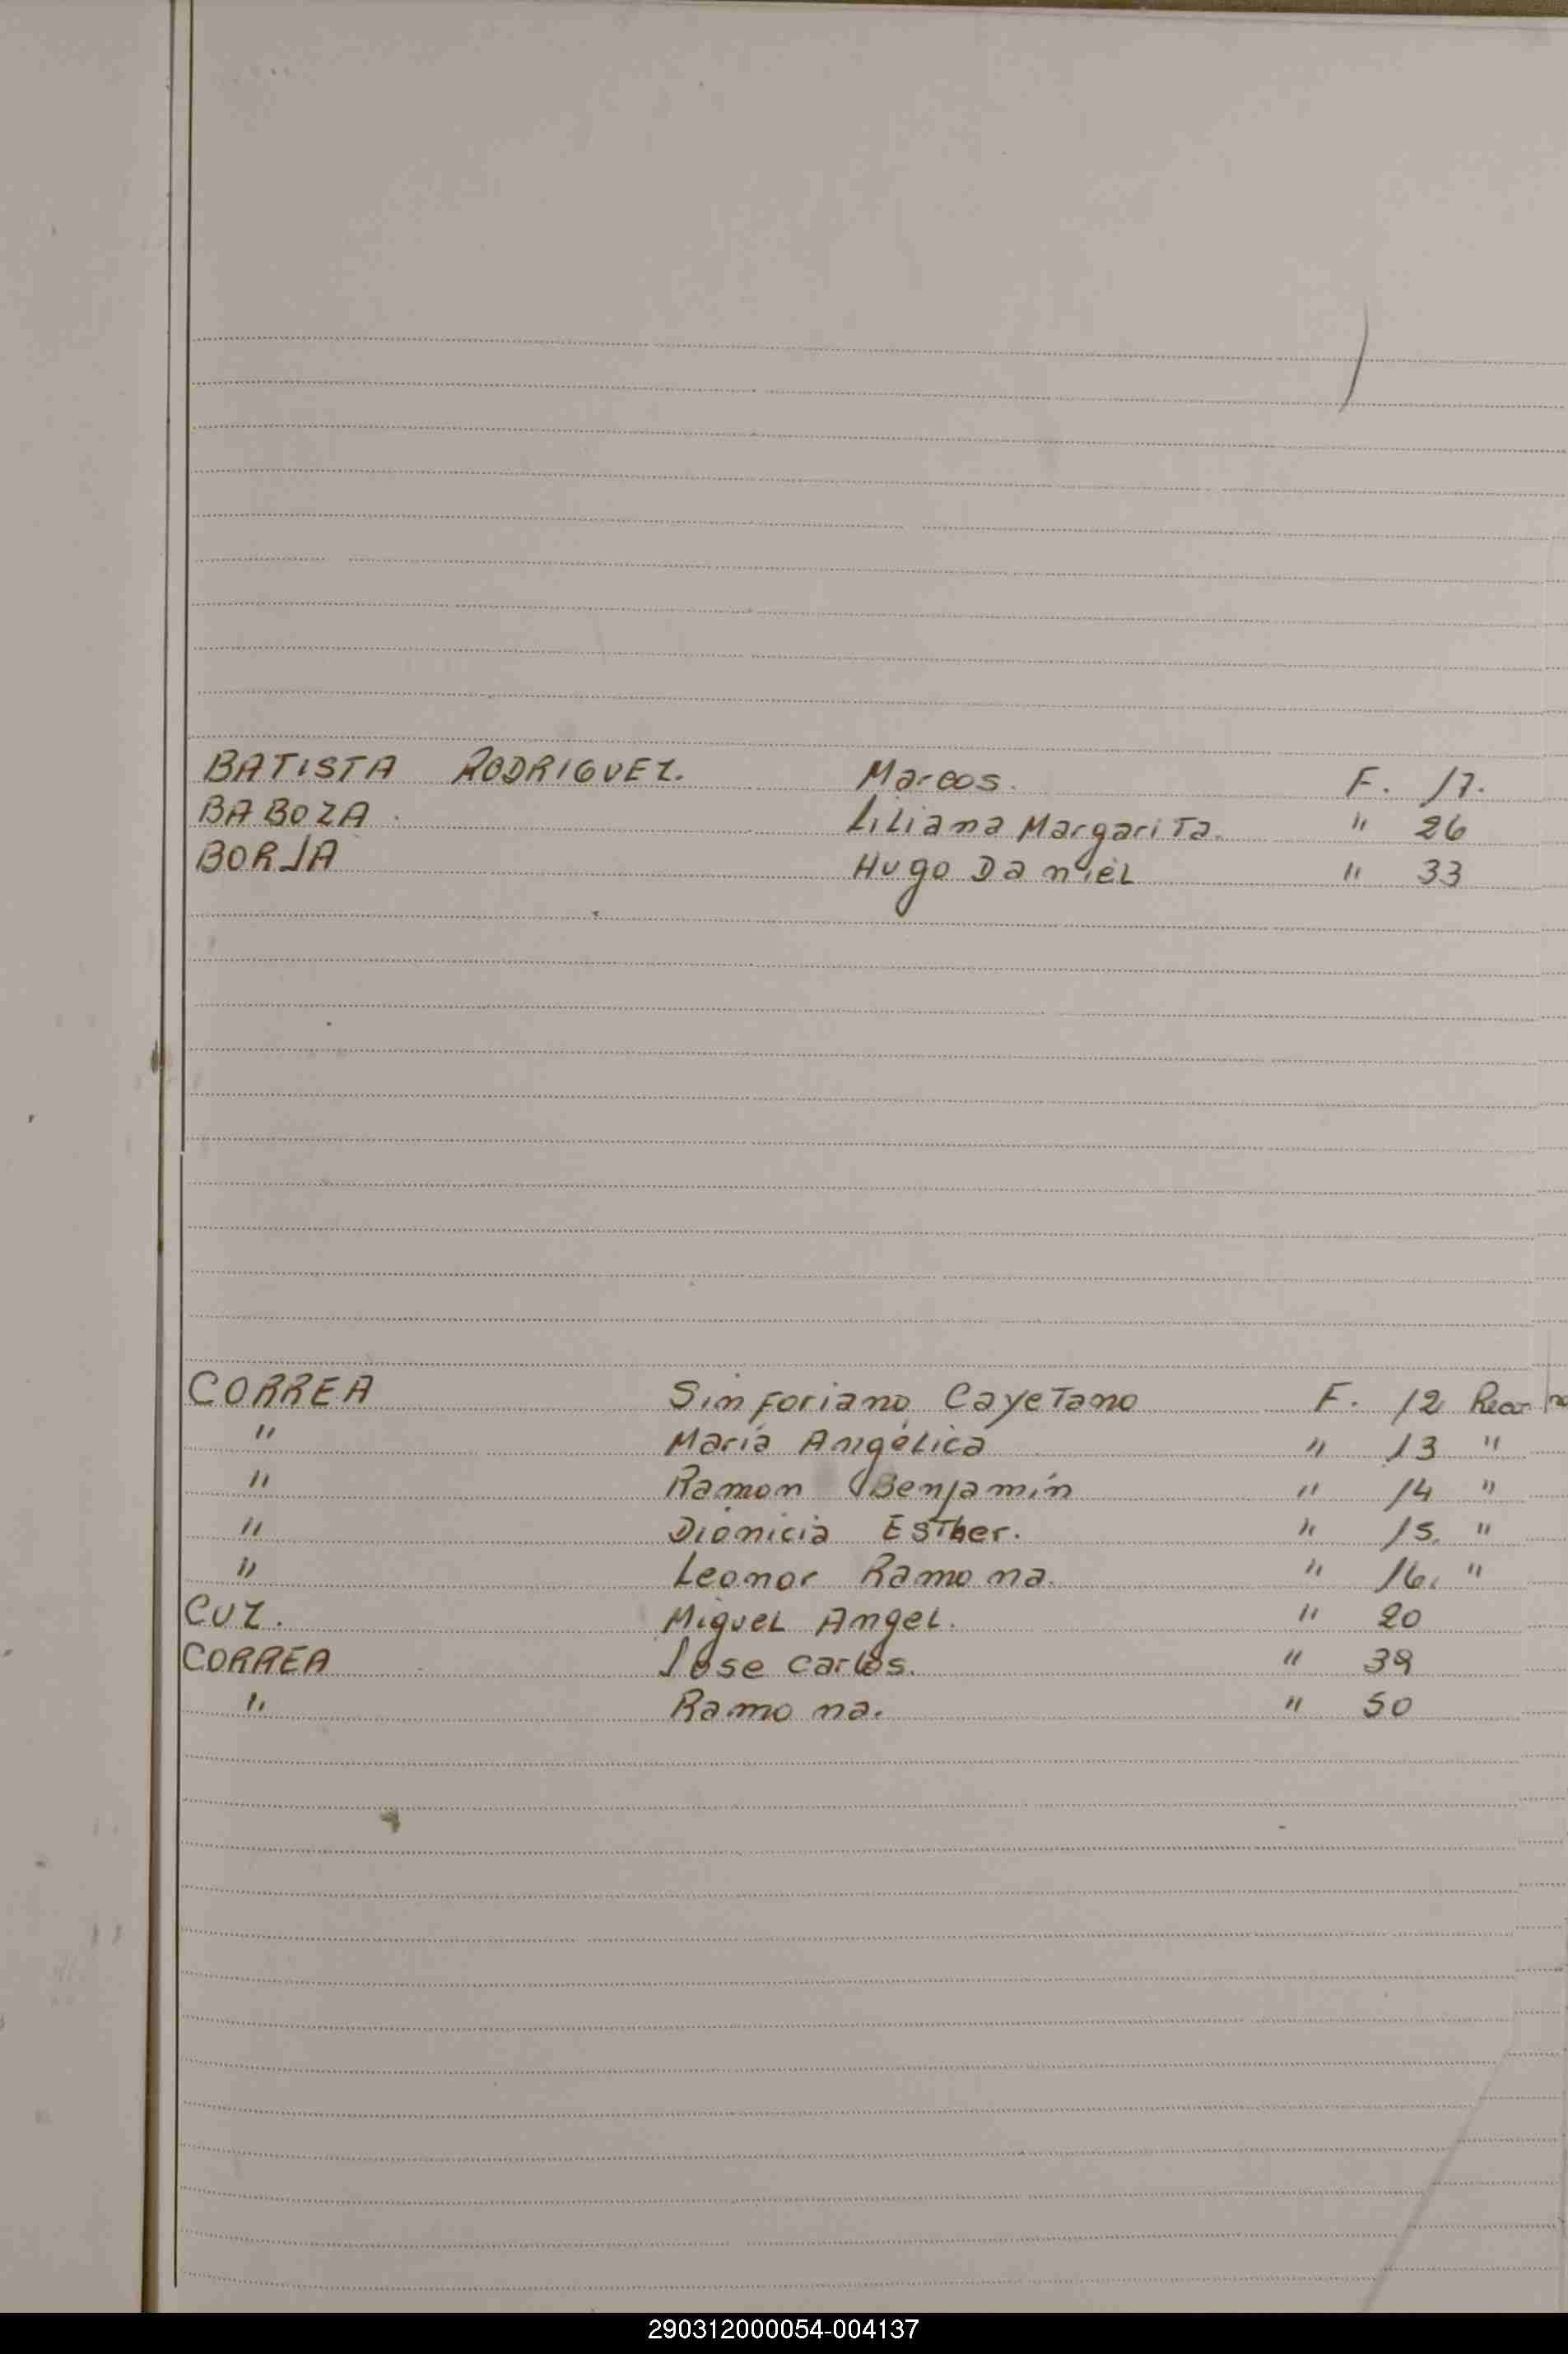 BATISTA RODRIGUEZ. Marcos. F. 17.
BABOZA. Liliana Margarita. " 26
BORJA Hugo Daniel " 33
CORREA Sinforiano Cayetano F. 12
" María Angélica " 13 "
" Ramon Benjamín " 14 "
" Dionicia Esther. " 15. "
" Leonor Ramona. " 16. "
CUZ. Miguel Angel. " 20
CORREA Jose Carlos. " 39
" Ramona. " 50
290312000054-004137